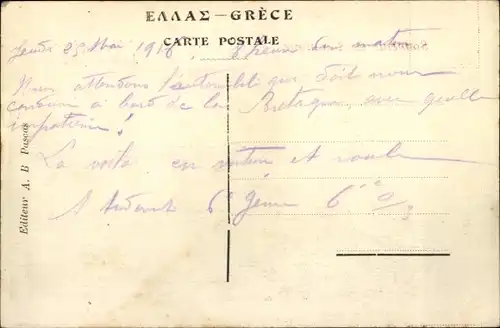 ΕΛΛΑΣ – GRÈCE
CARTE POSTALE
Jeudi 25 Mai 1916, 8 heures du matin
Nous attendons l'automobile qui doit nous
conduire à bord de la Bretagne, avec quelle
impatience!
La voilà en voiture et
6e Génie 6e
Editeur A. B Pascas